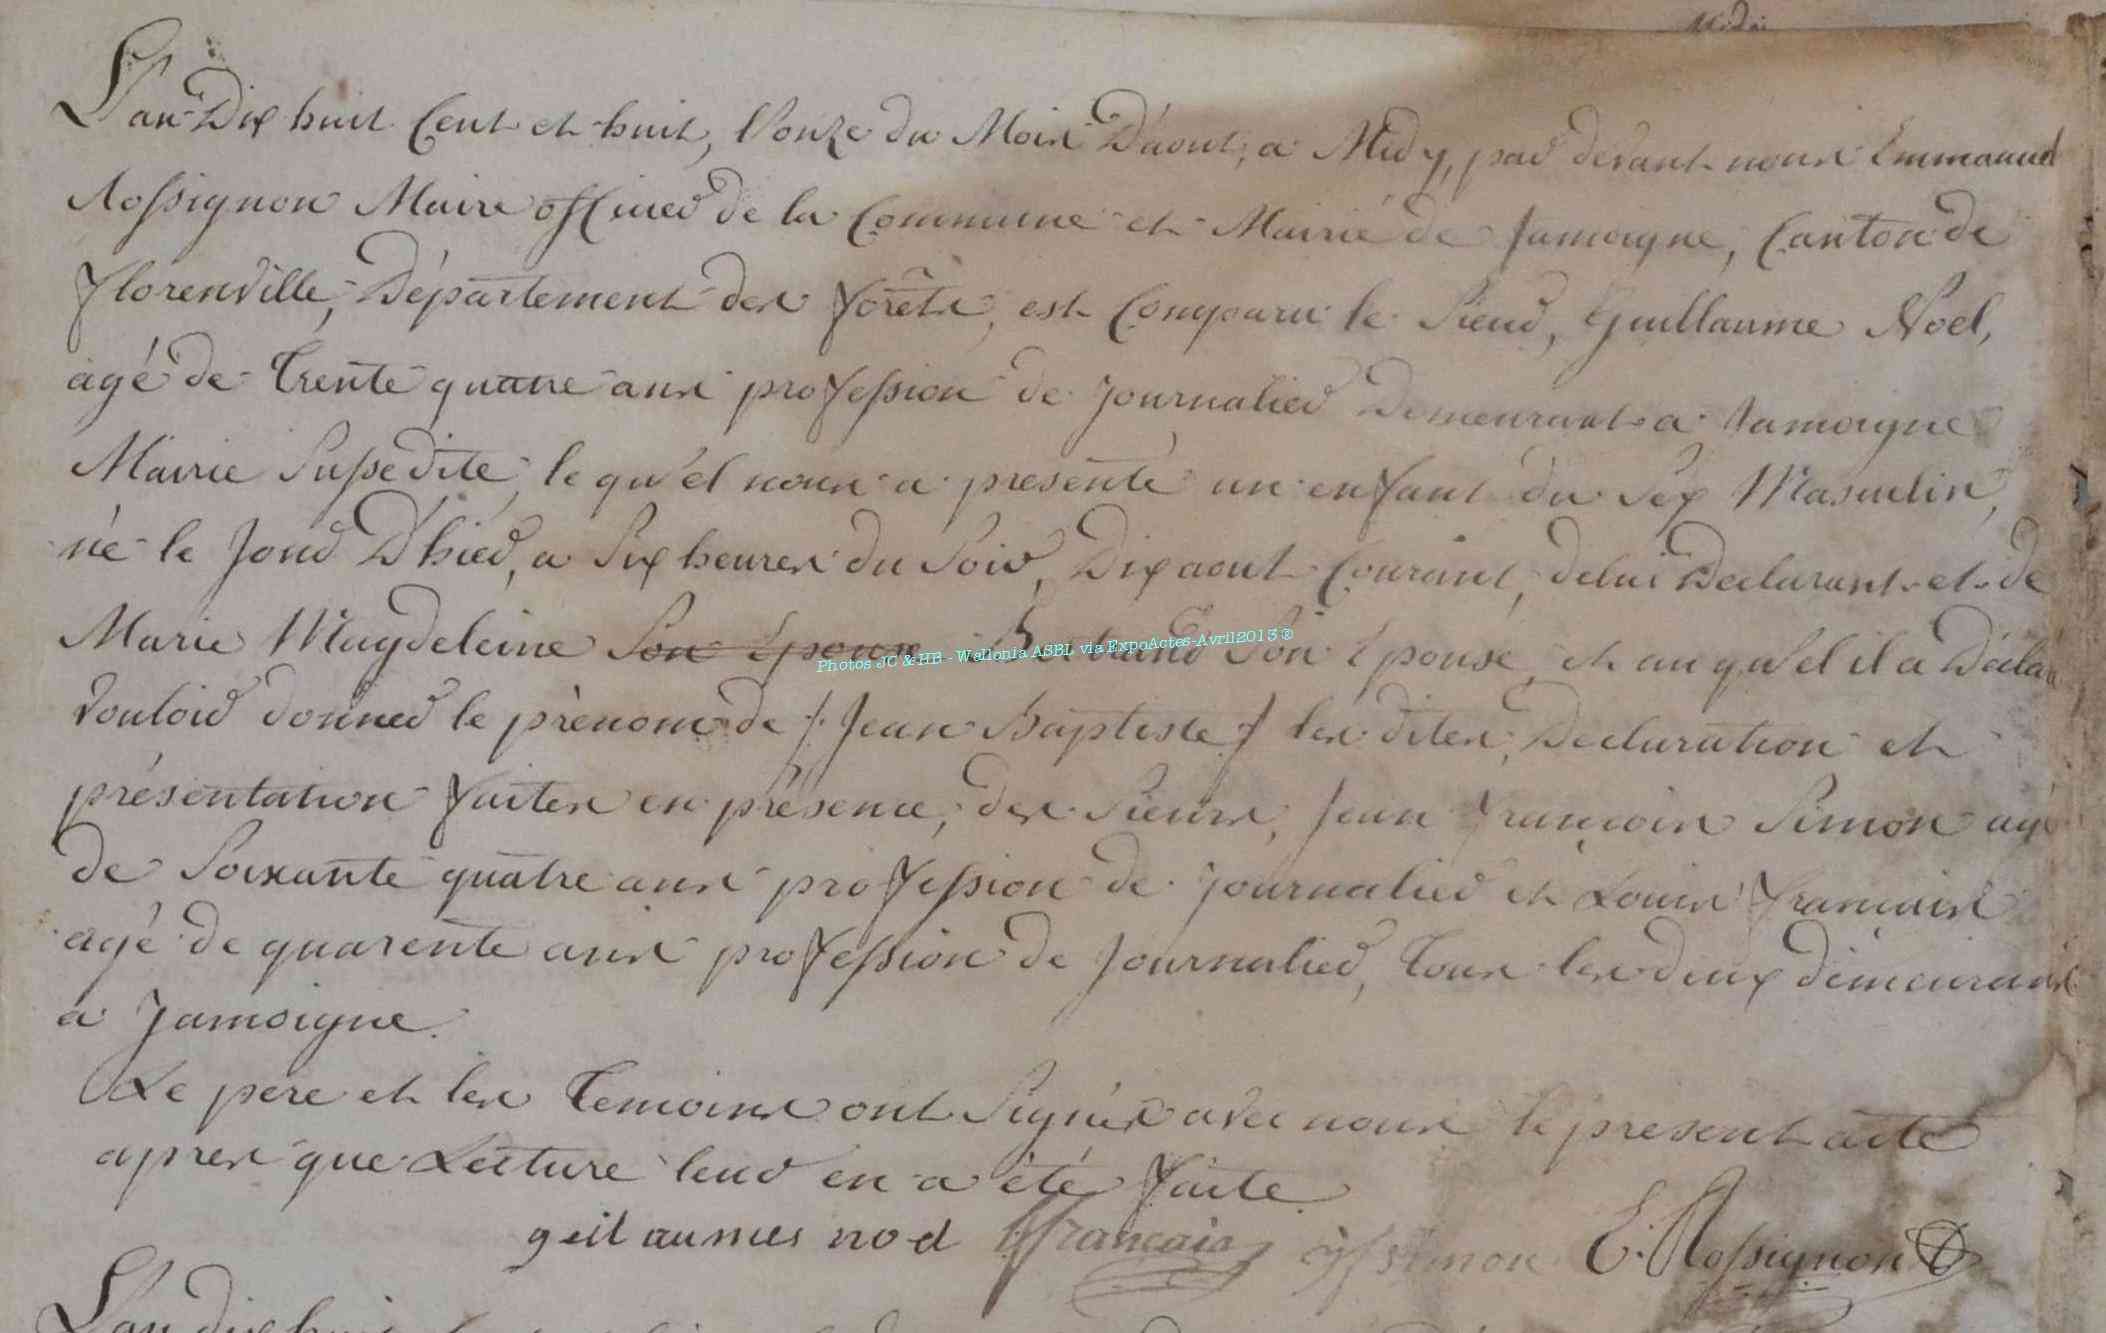 L'an Dix huit Cent et huit, l'onze du Mois D'aout, a Midy, par devant nous Emmanuel
Rossignon Maire officier de la Commune et Mairie de Jamoigne, Canton de
Florenville, Département des forêts, est Comparu le Sieur, Guillaume Noel,
agé de trente quatre ans profession de Journalier Demeurant a Jamoigne
Mairie Suspedite, le qu'el nous a presenté un enfant du Sex Masculin,
né le Jour D'hier, a Six heures du Soir, Dix aout Courant, de lui Declarant et de
Marie Magdeleine Son Epouse Son Epouse, et au qu'el il a Déclaré
vouloir donner le prènom de /. Jean Baptiste / les dites, Declaration et
présentation faites en présence, des Sieurs, Jean françois Simon agé
de Soixante quatre ans profession de journalier et Louis François
agé de quarente ans profession de Journalier, tous les deux demeurans
a Jamoigne.
Le pere et les temoins ont Signés avec nous le present acte
apres que Lecture leur en a été faite
noel françois jf simon E. Rossignon
L'an dix huit
Photos JC & HB - Wallonia ASBL via ExpoActes-Avril2013 ®